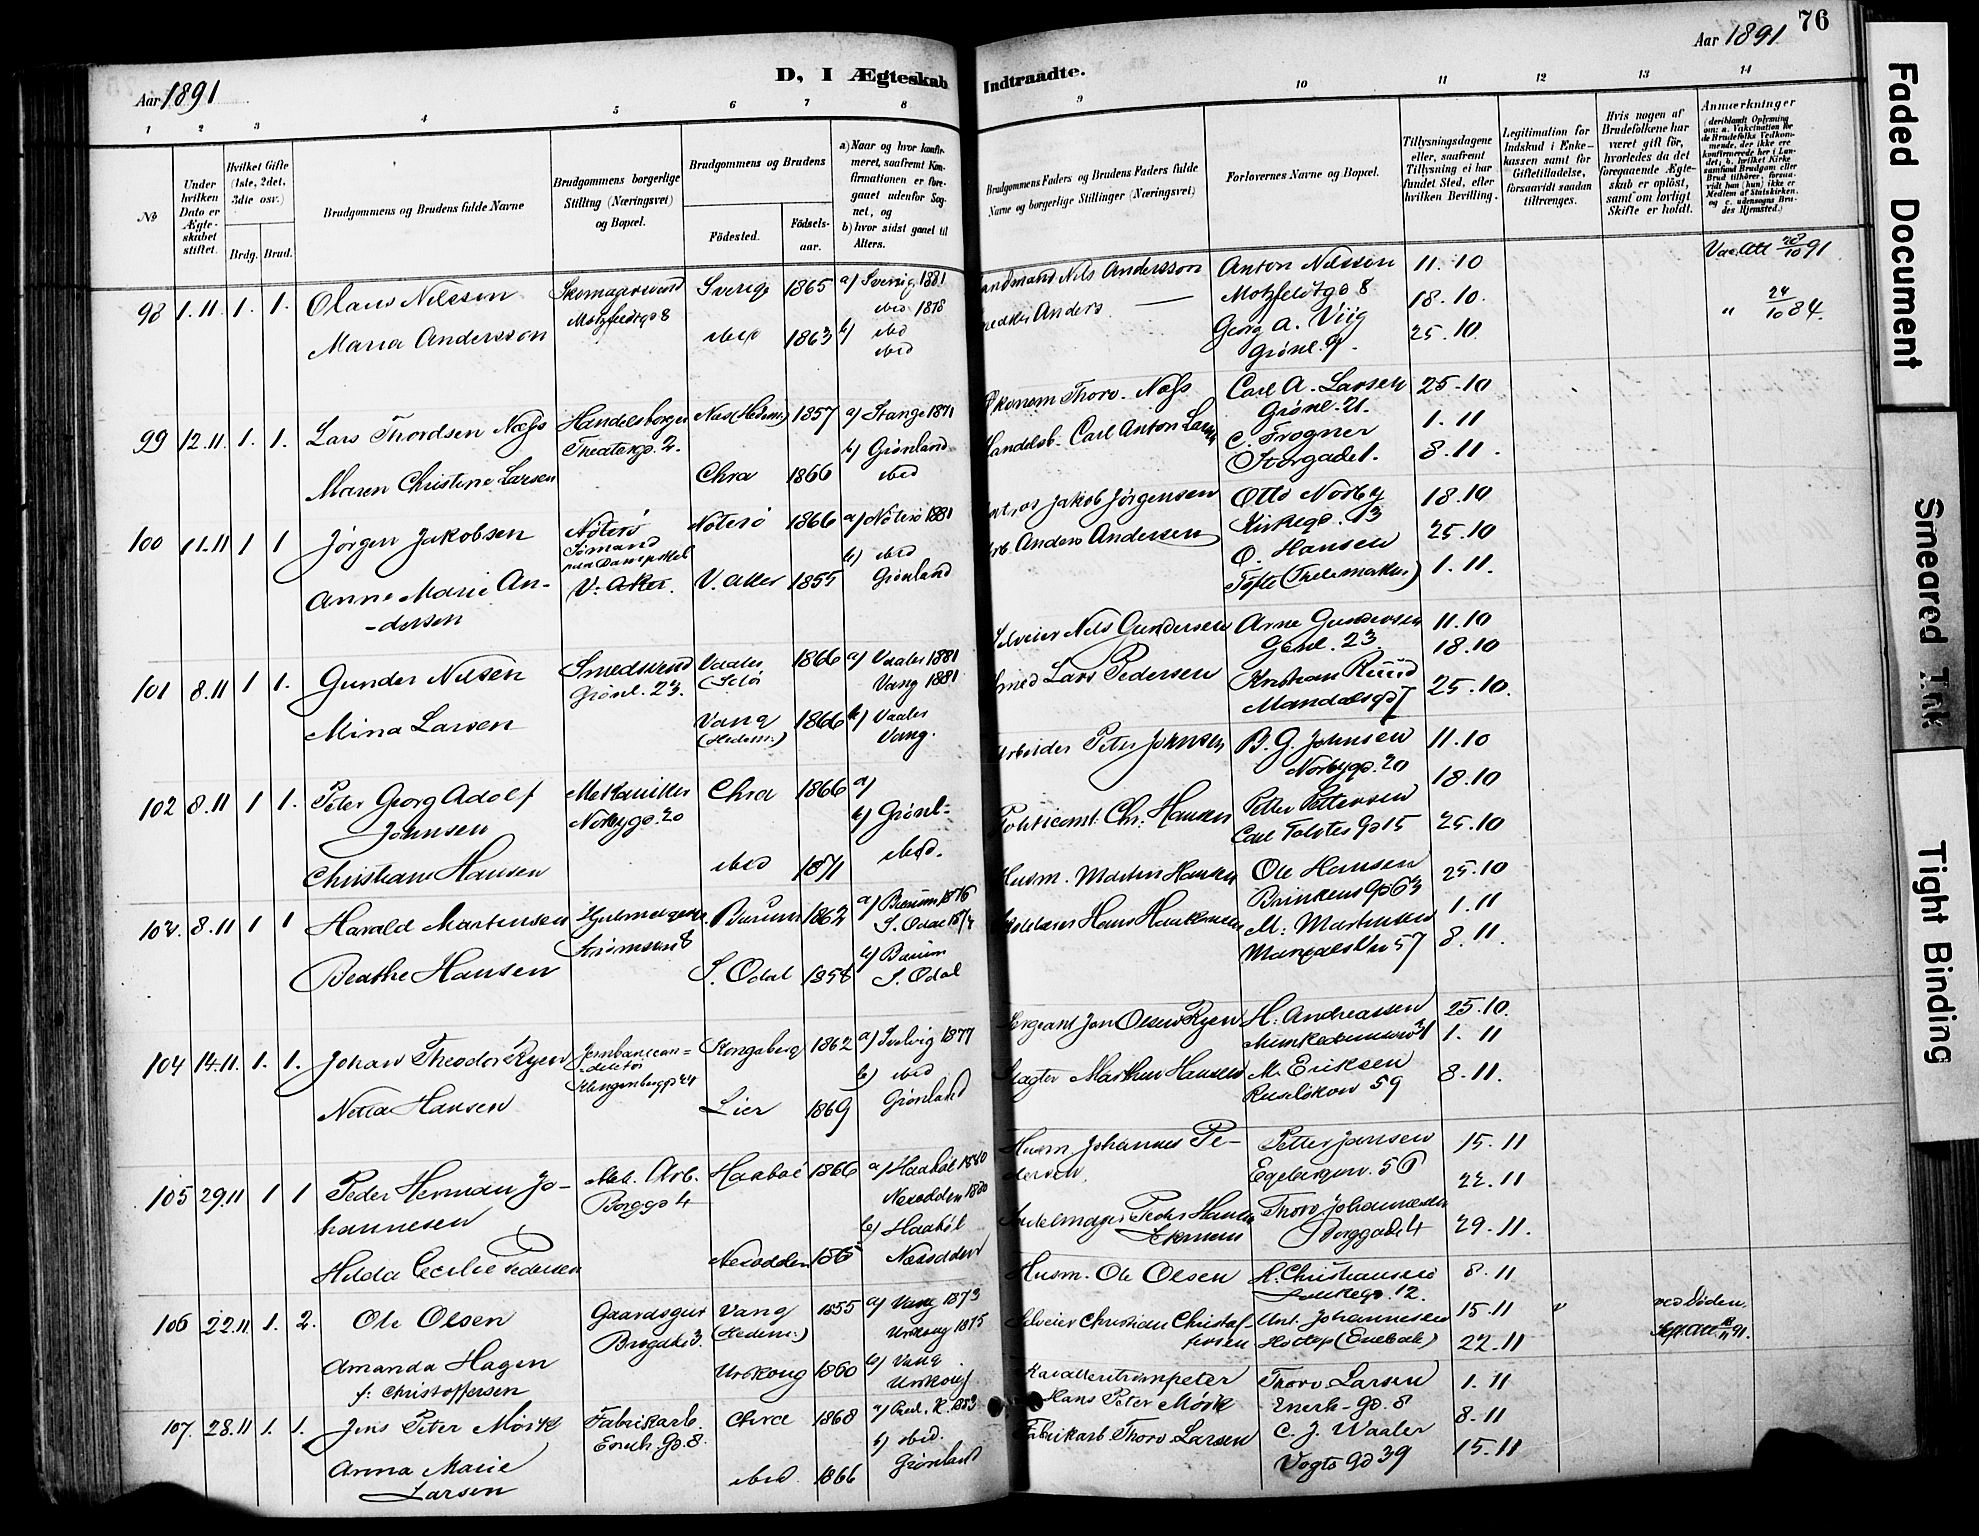 76
Aar 1891
Aar 1891
D, I Ægteskab Indtraadte.
1 2 3 4 5 6 7 8 9 10 11 12 13 14
No
Under hvilken Dato er Ægteskabet stiftet.
Hvilket Gifte (1ste, 2det, 3die osv.)
Brdg. Brud.
Brudgommens og Brudens fulde Navne
Brudgommens borgerlige Stilling (Næringsvei) og Bopæl.
Brudgommens og Brudens
Födested.
Födselsaar.
a) Naar og hvor konfirmeret, saafremt Konfirmationen er foregaaet udenfor Sognet, og
b) hvor sidst gaaet til Alters.
Brudgommens Faders og Brudens Faders fulde Navne og borgerlige Stillinger (Næringsvei)
Forlovernes Navne og Bopæl.
Tillysningsdagene eller, saafremt Tillysning ei har fundet Sted, efter hvilken Bevilling.
Legitimation for Indskud i Enkekassen samt for Giftetilladelse, forsaavidt saadan tiltrænges.
Hvis nogen af Brudefolkene har været gift før, hvorledes da det foregaaende Ægteskab er opløst, samt om lovligt Skifte er holdt.
Anmærkninger
(deriblandt Oplysning om: a. Vakcination for de Brudefolks Vedkommende, der ikke ere konfirmerede her i Landet; b. hvilket Kirkesamfund Brudgom eller Brud tilhører, forsaavidt han (hun) ikke er Medlem af Statskirken, og c. udensogns Brudes Hjemsted.)
98 1.11. 1. 1. Olaus Nilssen
Skomagersvend
Motzfeldtgd 8
Sverig 1865 a) Sverig 1881
ibid 1878
Maria Andersson
ibid 1863 b) ibid
ibid
Nils Andersson
Anders
Anton Nilssen
Motzfeldtgd 8
Georg A. Viig
Grønl. 9.
11.10
18.10.
25.10.
Vac.Att 28/10 91
" 24/10 84.
99 12.11. 1. 1. Lars Thordsen Næss
Handelsborger
Theatergd. 2.
Næs (Hedem.) 1857 a) Stange 1871
b) Grønland
Maren Christine Larsen
Chra 1866 ibid
Økonom Thord. Næss
Handelsb. Carl Anton Larsen
Carl A. Larsen
Grønl. 21.
C. Frogner
Storgade 1.
25.10
1.11
8.11.
100 11.11 1 1 Jørgen Jakobsen
Nøterö
Sömand
V. Aker.
Nøterö 1866 a) Nøterö 1881
b) ibid
Anne Marie An-
-dersen
V. Aker 1855 Grønland
Jakob Jørgensen
Arb. Anders Andersen
Otto Norby
Kirkegd. 13
O. Hansen
Tofte (Thelemarken)
18.10
25.10
1.11.
101 8.11 1 1. Gunder Nilsen
Smedsvend
Grønl. 23.
Vaaler
(Solör
1866 a) Vaaler 1881
Vang 1881
Mina Larsen
Vang
(Hedem.)
1866 b) Vaaler
Vang.
Selveier Nils Gundersen
Smed Lars Pedersen
Arne Gundersen
Grønl. 23
Kristian Ruud
Mandalsgd 7
11.10
18.10
25.10.
102 8.11 1 1. Peter Georg Adolf
Johnsen
Mekaniker
Norbygd. 20
Chra 1866 a)
b) Grønl.
Christiane Hansen
ibid 1871 ibid.
Arbeider Peter Johnsen
Politiconst. Chr. Hansen
B. G. Johnsen
Norbygd. 20
Petter Pettersen
Carl 15
11.10
18.10
25.10
103. 8.11 1 1 Harald Martinsen
Strömsvn 8
Bærum 1862 a) Bærum 1876
S. Odal 1874
Beathe Hansen
S. Odal 1858 b) Bærum
S. Odal
Husm. Martin Hansen
Hans
Ole Hansen
Brinkens Gd 63
M. Martinsen
57
25.10
1.11
8.11.
104 14.11. 1. 1. Johan Theodor Ryen
Jernbanecon-
ductör
Klingenbggd 44
Kongsberg 1862 a) 1877
b) ibid
Netta Hansen
Lier 1869 Grønland
Sergeant Jon Olsen Ryen
Slagter Mathias Hansen
H. Andreassen
Munkedamsv 31
M. Eriksen
Ruseløkvn 59
25.10.
1.11
8.11.
105 29.11 1 1 Peder Herman Jo-
hannesen
Mek. Arb.
Borggd 4
Haaböl 1866 a) Haaböl 1880
Nesodden 1880
b) Haaböl
Hilda Cecilie Pedersen
Nesodden 1865 Nesodden
Husm Johannes Pe-
dersen.
Peder Hansen
Petter Jansen
Egebergvn. 56
Thorv Johannesen
Borggade 4
15.11
22.11
29.11.
106 22.11. 1. 2. Ole Olsen
Gaardsgut
3.
Vang
(Hedem.)
1855 a) Vang 1873
Urskoug 1875
Amanda Hagen
f: Christoffersen
Urskoug 1860 b) Vang
Urskoug
Husm. Ole Olsen
Selveier Christian Christof-
fersen
A. Christiansen
12.
Ant. Johannesen
(Enebak)
8.11
15.11
22.11
ved Döden.
91.
107. 28.11 1. 1. Jens Peter Mörk
Fabrikarb.
Enerh. Gd. 8.
Chra 1868 a) 1883
b) ibid.
Anna Marie
Larsen
ibid. 1866 Grønland
Kavalleritrompeter
Hans Peter Mörk
Fabrikarb. Thorv. Larsen
Thorv. Larsen
Enerh. Gd. 8
C. J. Waaler
Vogts Gd 39
1.11
8.11
15.11
Faded Document
Smeared Ink
Tight Binding